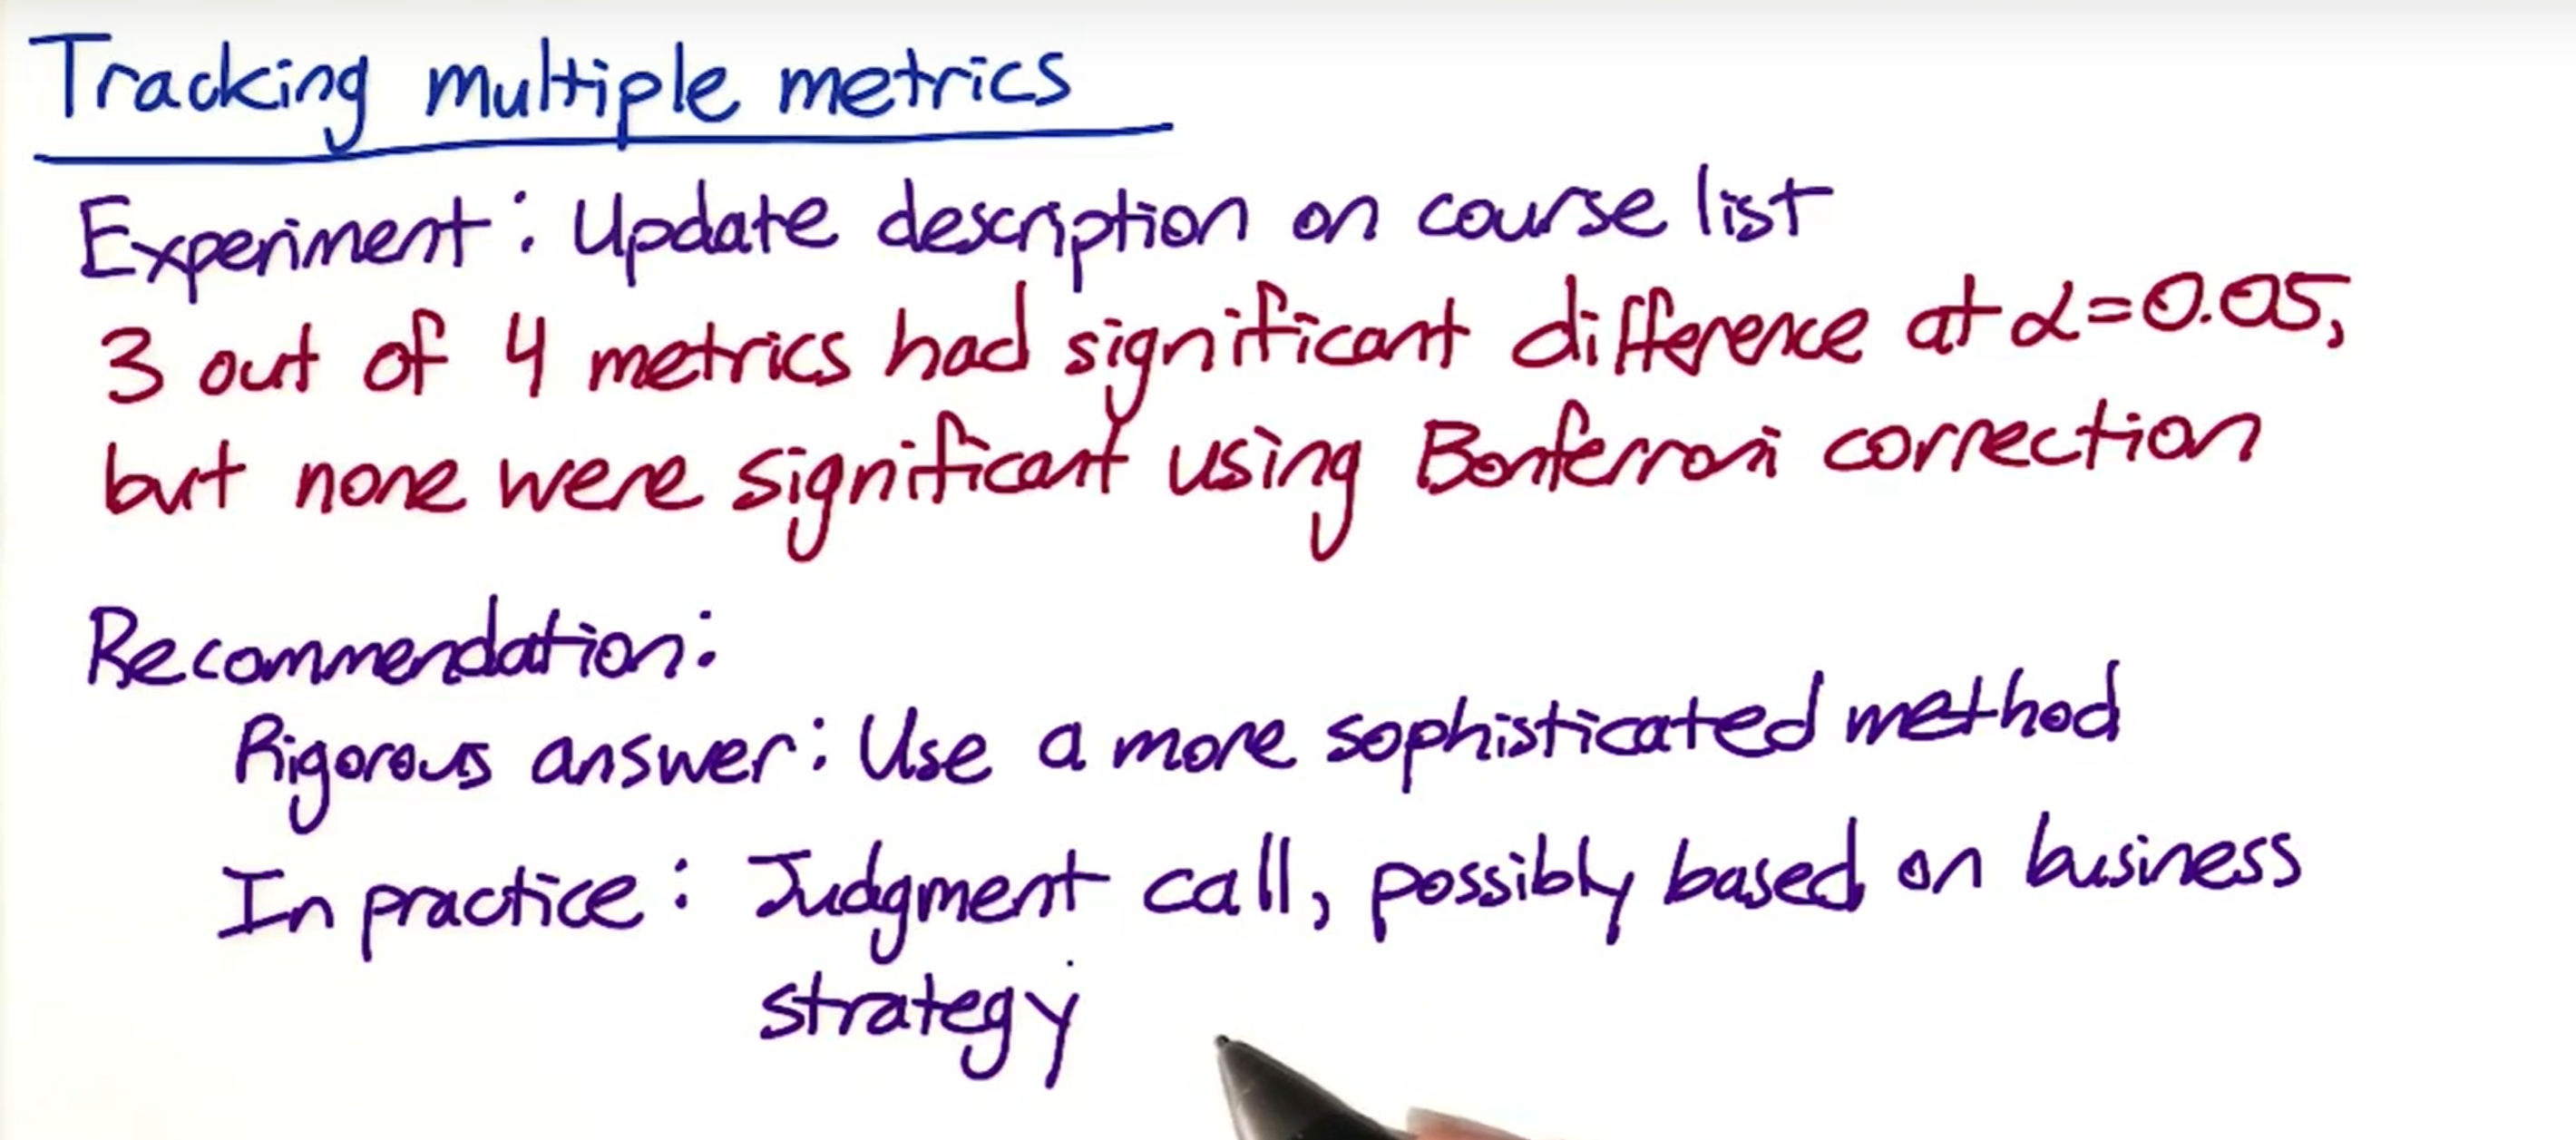 Tracking multiple metrics
Experiment: Update description on course list
3 out of 4 metrics had significant difference at α=0.05,
but none were significant using Bonferroni correction
Recommendation:
Rigorous answer: Use a more sophisticated method
In practice: Judgment call, possibly based on business
strategy